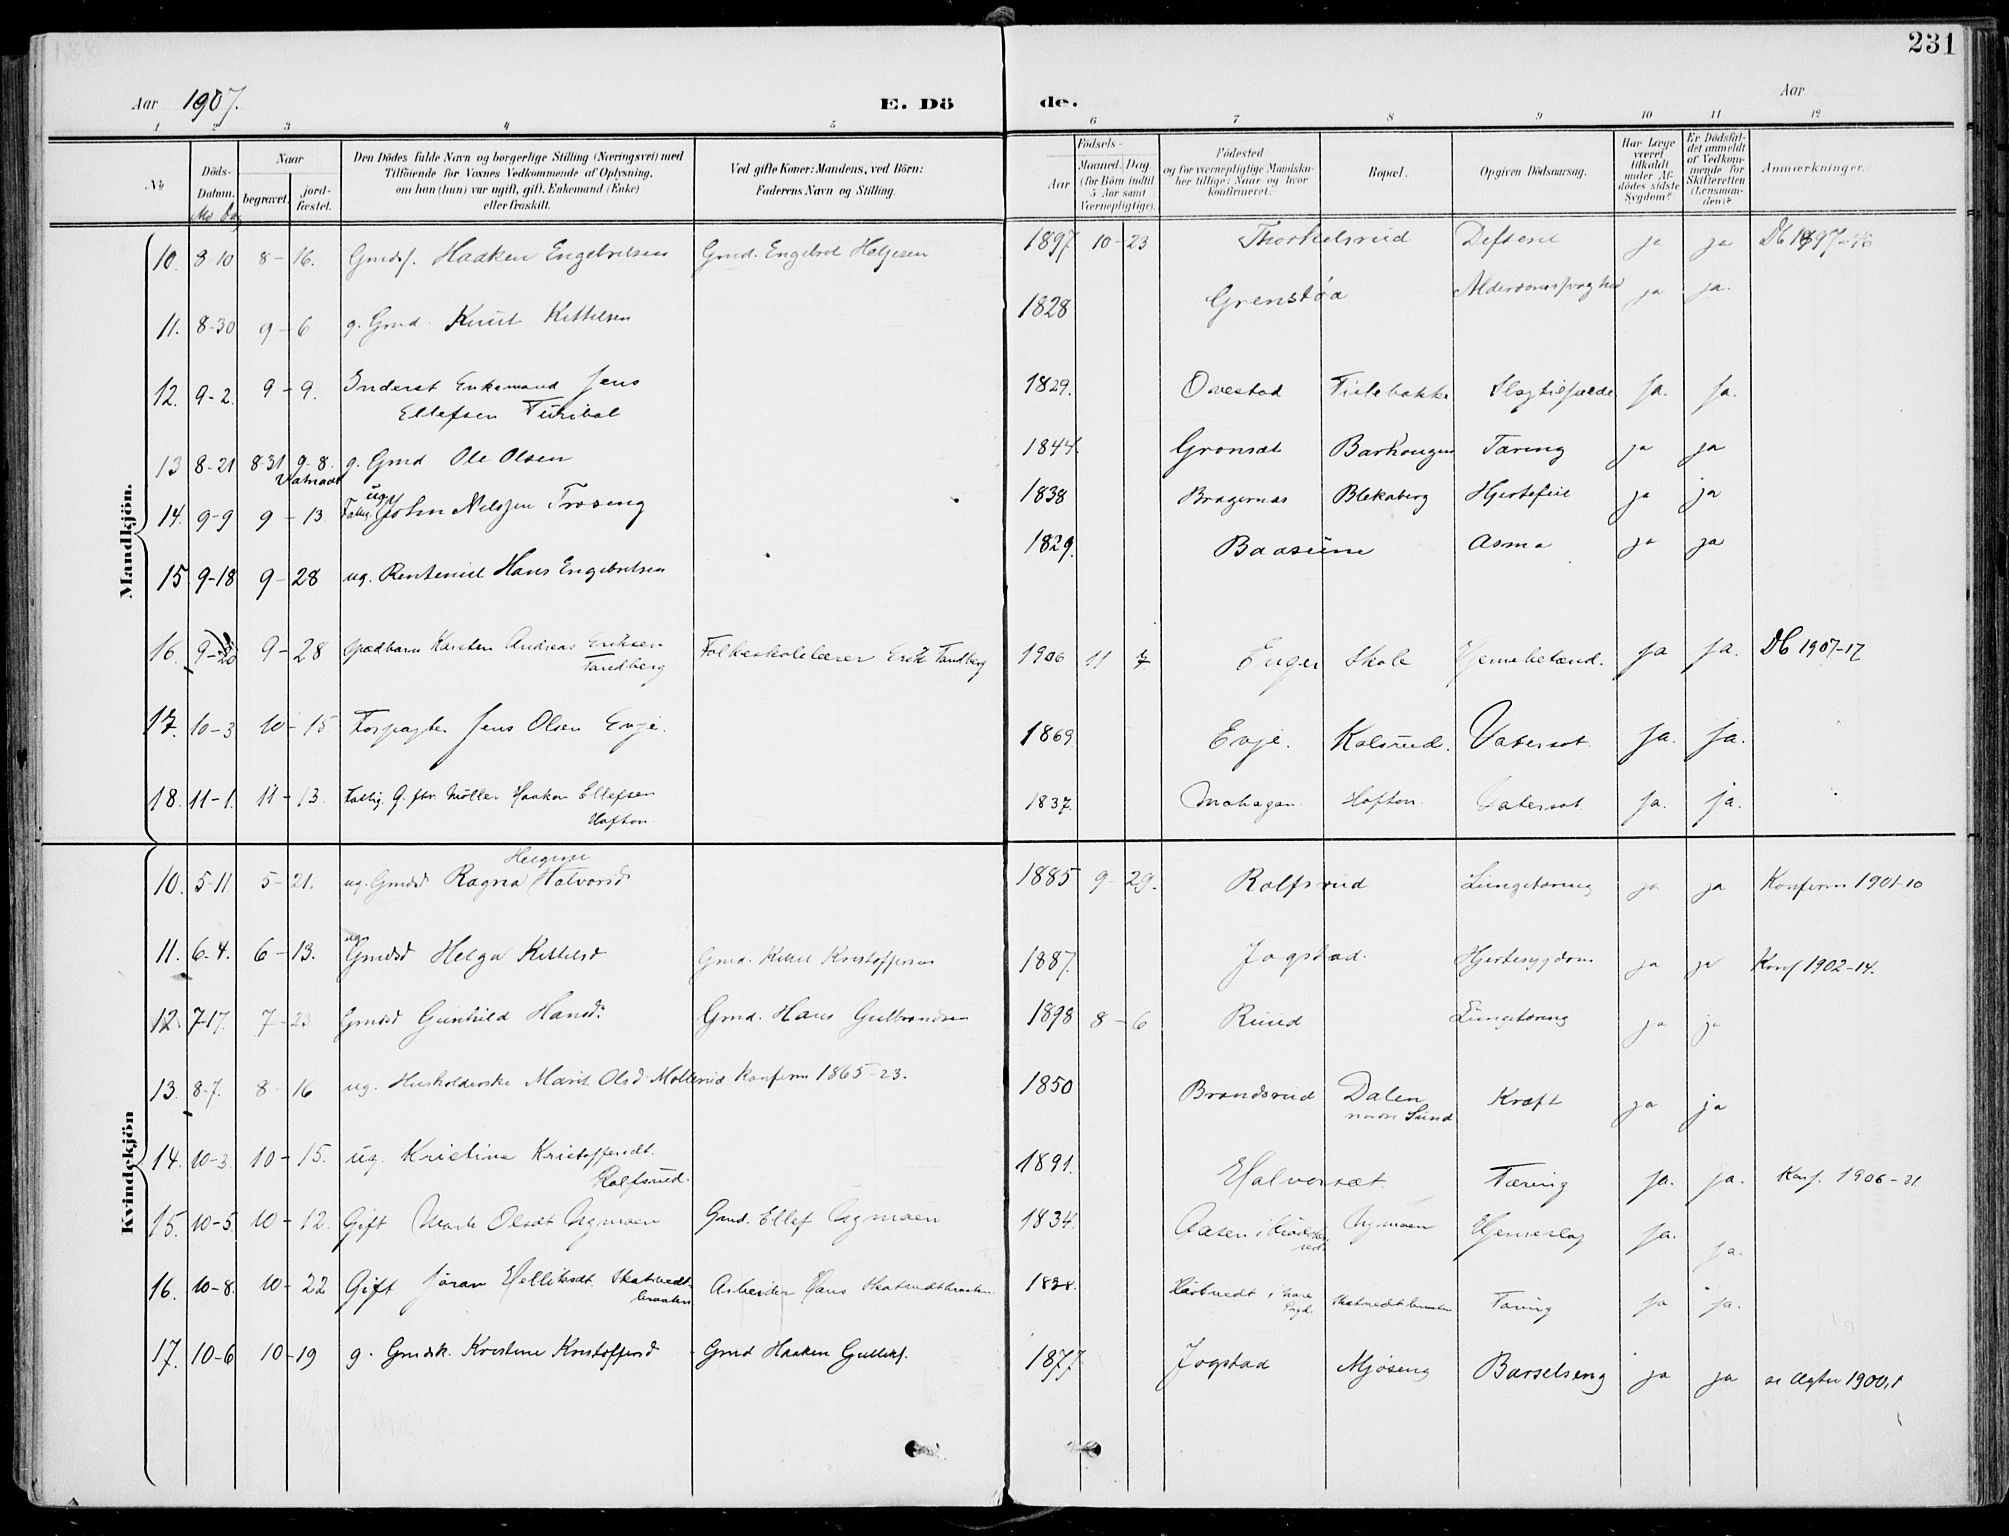 231
Aar 1907. E. Dö de. Aar
1 2 3 4 5 6 7 8 9 10 11 12
№ Döds-Datum. Naar begravet. jord-fæstet. Den Dödes fulde Navn og borgerlige Stilling (Næringsvei) med Tilföiende for Voxnes Vedkommende af Oplysning, om han (hun) var ugift, gift, Enkemand (Enke) eller fraskilt. Ved gifte Koner: Mandens, ved Börn: Faderens Navn og Stilling. Födsels- Aar Maaned. Dag (for Börn indtil 5 Aar samt Værnepligtige). Födested og for værnepligtige Mandskaber tillige: Naar og hvor konfirmeret. Bopæl. Opgiven Dödsaarsag. Har Læge været tilkaldt under Afdödes sidste Sygdom? Er Dödsfaldet anmeldt af Vedkommende for Skifteretten (Lensmanden)? Anmærkninger.
Md Dag
Mandkjön.
10. 8-10 8-16. Gmds. Haaken Engebretsen Gmd. Engebret Helgesen 1897 10-23 Thorkelsrud Difteri ja ja Db 1897-46
11. 8-30 9-6 g. Gmd. Knut Kittelsen 1828 Grenstøa ja ja.
12. 9-2. 9-9. Inderst Enkemand Jens 1829. Ovestad Tislebakke Slagtilfælde ja. ja.
Ellefsen
13 8-21 8-31 9-8. g. Gmd Ole Olsen 1844. Gronsæt Tæring ja ja
14. 9-9 9-13 ug. John Nelsen Trøseng 1838 Bragernæs Blekaberg Hjertefeil ja ja
15 9-18 9-28 ug. Rentenist Hans Engebretsen 1829. Baasum Asma ja ja
16. 9-20 9-28 Spædbarn Karsten Andreas Eriksen Folkeskolelærer Erik Tandberg 1906 11 7. Enger Skole Hjernebetænd. ja ja. Db 1907-17
Tandberg
17. 10-3 10-15 Forpagter Jens Olsen Evje. 1869 Evje. Kolsrud. Vatersot. ja. ja.
18. 11-1. 11-13. Fattig. G. fhv. Møller Haakon Ellefsen 1837. Hofton Vatersot ja. ja.
Hofton
Kvindekjön
10. 5-11 5-21. ug. Gmdsd Ragna Halvorsd 1885 9-29. Rolfsrud Lungetæring ja ja Konfirm 1901-10
11. 6-4. 6-13. ug. Gmdsd Helga Kittelsd Gmd. Kittel Kristoffersen 1887. Jogstad. Hjertesygdom ja ja Konf 1902-14.
12. 7-17. 7-23 Gmdsd Gunhild Hansd. Gmd. Hans Gulbrandsen 1898 8-6 Ruud Lungetæring ja ja
13. 8-7. 8-16 ug. Husholderske Marit Olsd Møllerud Konfirm 1865-23. 1850 Brandsrud Dalen Kræft ja ja
nordre Sund
14. 10-3 10-15. ug. Kristine Kristoffersdt. 1891. Halvorsæt. Tæring ja. ja. Konf. 1906-21
Rolfsrud.
15. 10-5 10-12. Gift Marte Olsdt Agmoen Gmd. Ellef Agmoen 1834. Aasen i Krødsherred Agmoen Hjerneslag ja. ja.
16. 10-8. 10-22 Gift Jøran Helliksdt. Skatvedtbraaten Arbeider Hans Skatvedtbraaten Skatvedtbraaten Tæring ja ja.
17. 10-6 10-19 g. Gmdsk. Kristine Kristoffersd Gmd Haaken Gulliks. 1877. Jogstad Mjøseng Barselseng ja ja se Ægtev 1900,1